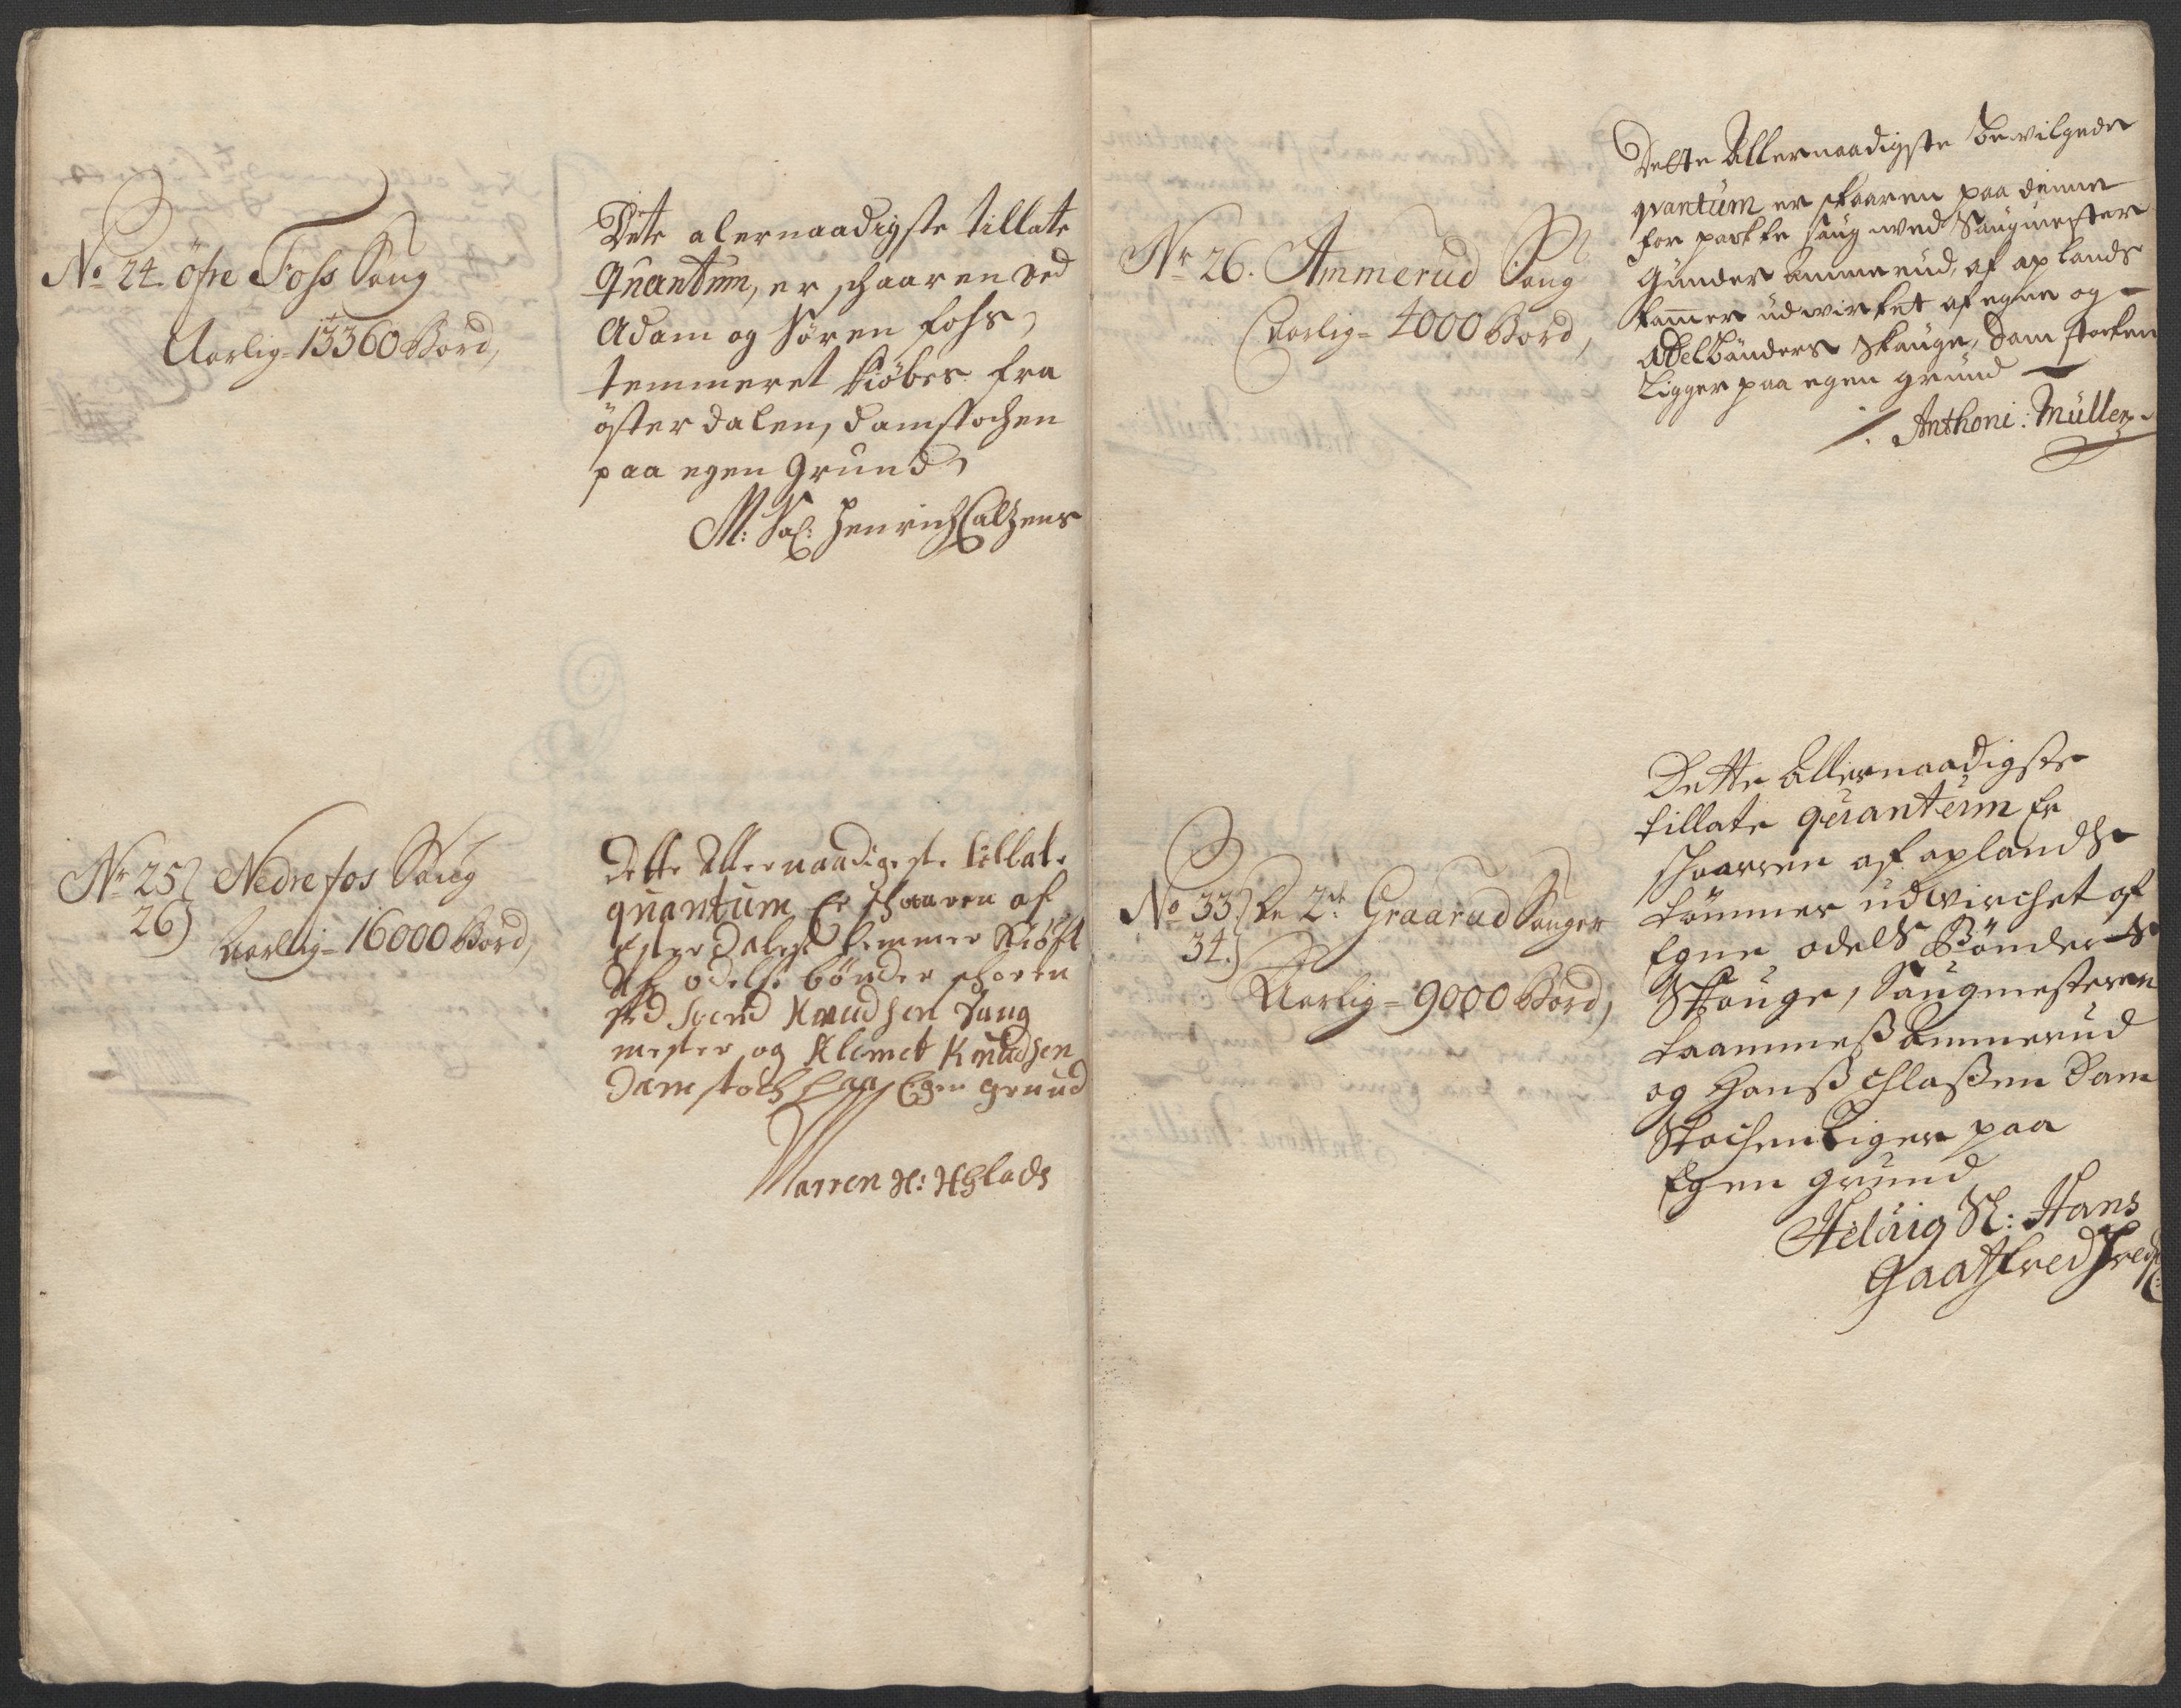 No 24. öfre Foss Saug
Aarlig = 13360 Bord,
Dete alernaadigste tillate
Quantum, er schaaren ved
Adam og Sören fohs,
temmeret kiöbes fra
öster dalen, damstochen
paa egen Grund,
M: Sal: Henrich Calzens
Nr 25 Nedre fos Saug
26)
Aarlig = 16000 Bord,
Dette Allernaadigeste tillate
quantum Er schaaren af
Østerdalest temmer kiöfft
Af odelse bönder schoren
ved Svend Knudsen Saug
mester og Klemet Knudsen
Damstoch paa Egen grund
Marren Sl: H
Nr 26. Ammerud Saug
Aarlig = 4000 Bord,
Dette Allernaadigste bevilgede
qvantum er skaaren paa denne
for packte saug med Saugmester
Gunder Ammerud, af oplands
tømmer udvirket af egne og
Odelbönders Skauge, Damstocken
Ligger paa egen grund
Anthoni: Müller
No 33) De 2de Graarud Sauger
34.)
Aarlig = 9000 Bord,
Dette Allernaadigste
tillate quantum Er
schaaren af oplandsk
tömmer udvirchet af
Egne odels Bönders
Skouge, Saugmesteren
Ammerud
og Hanss Dam
Stochen Liger paa
Egen grund
Helvig Sl: Hans